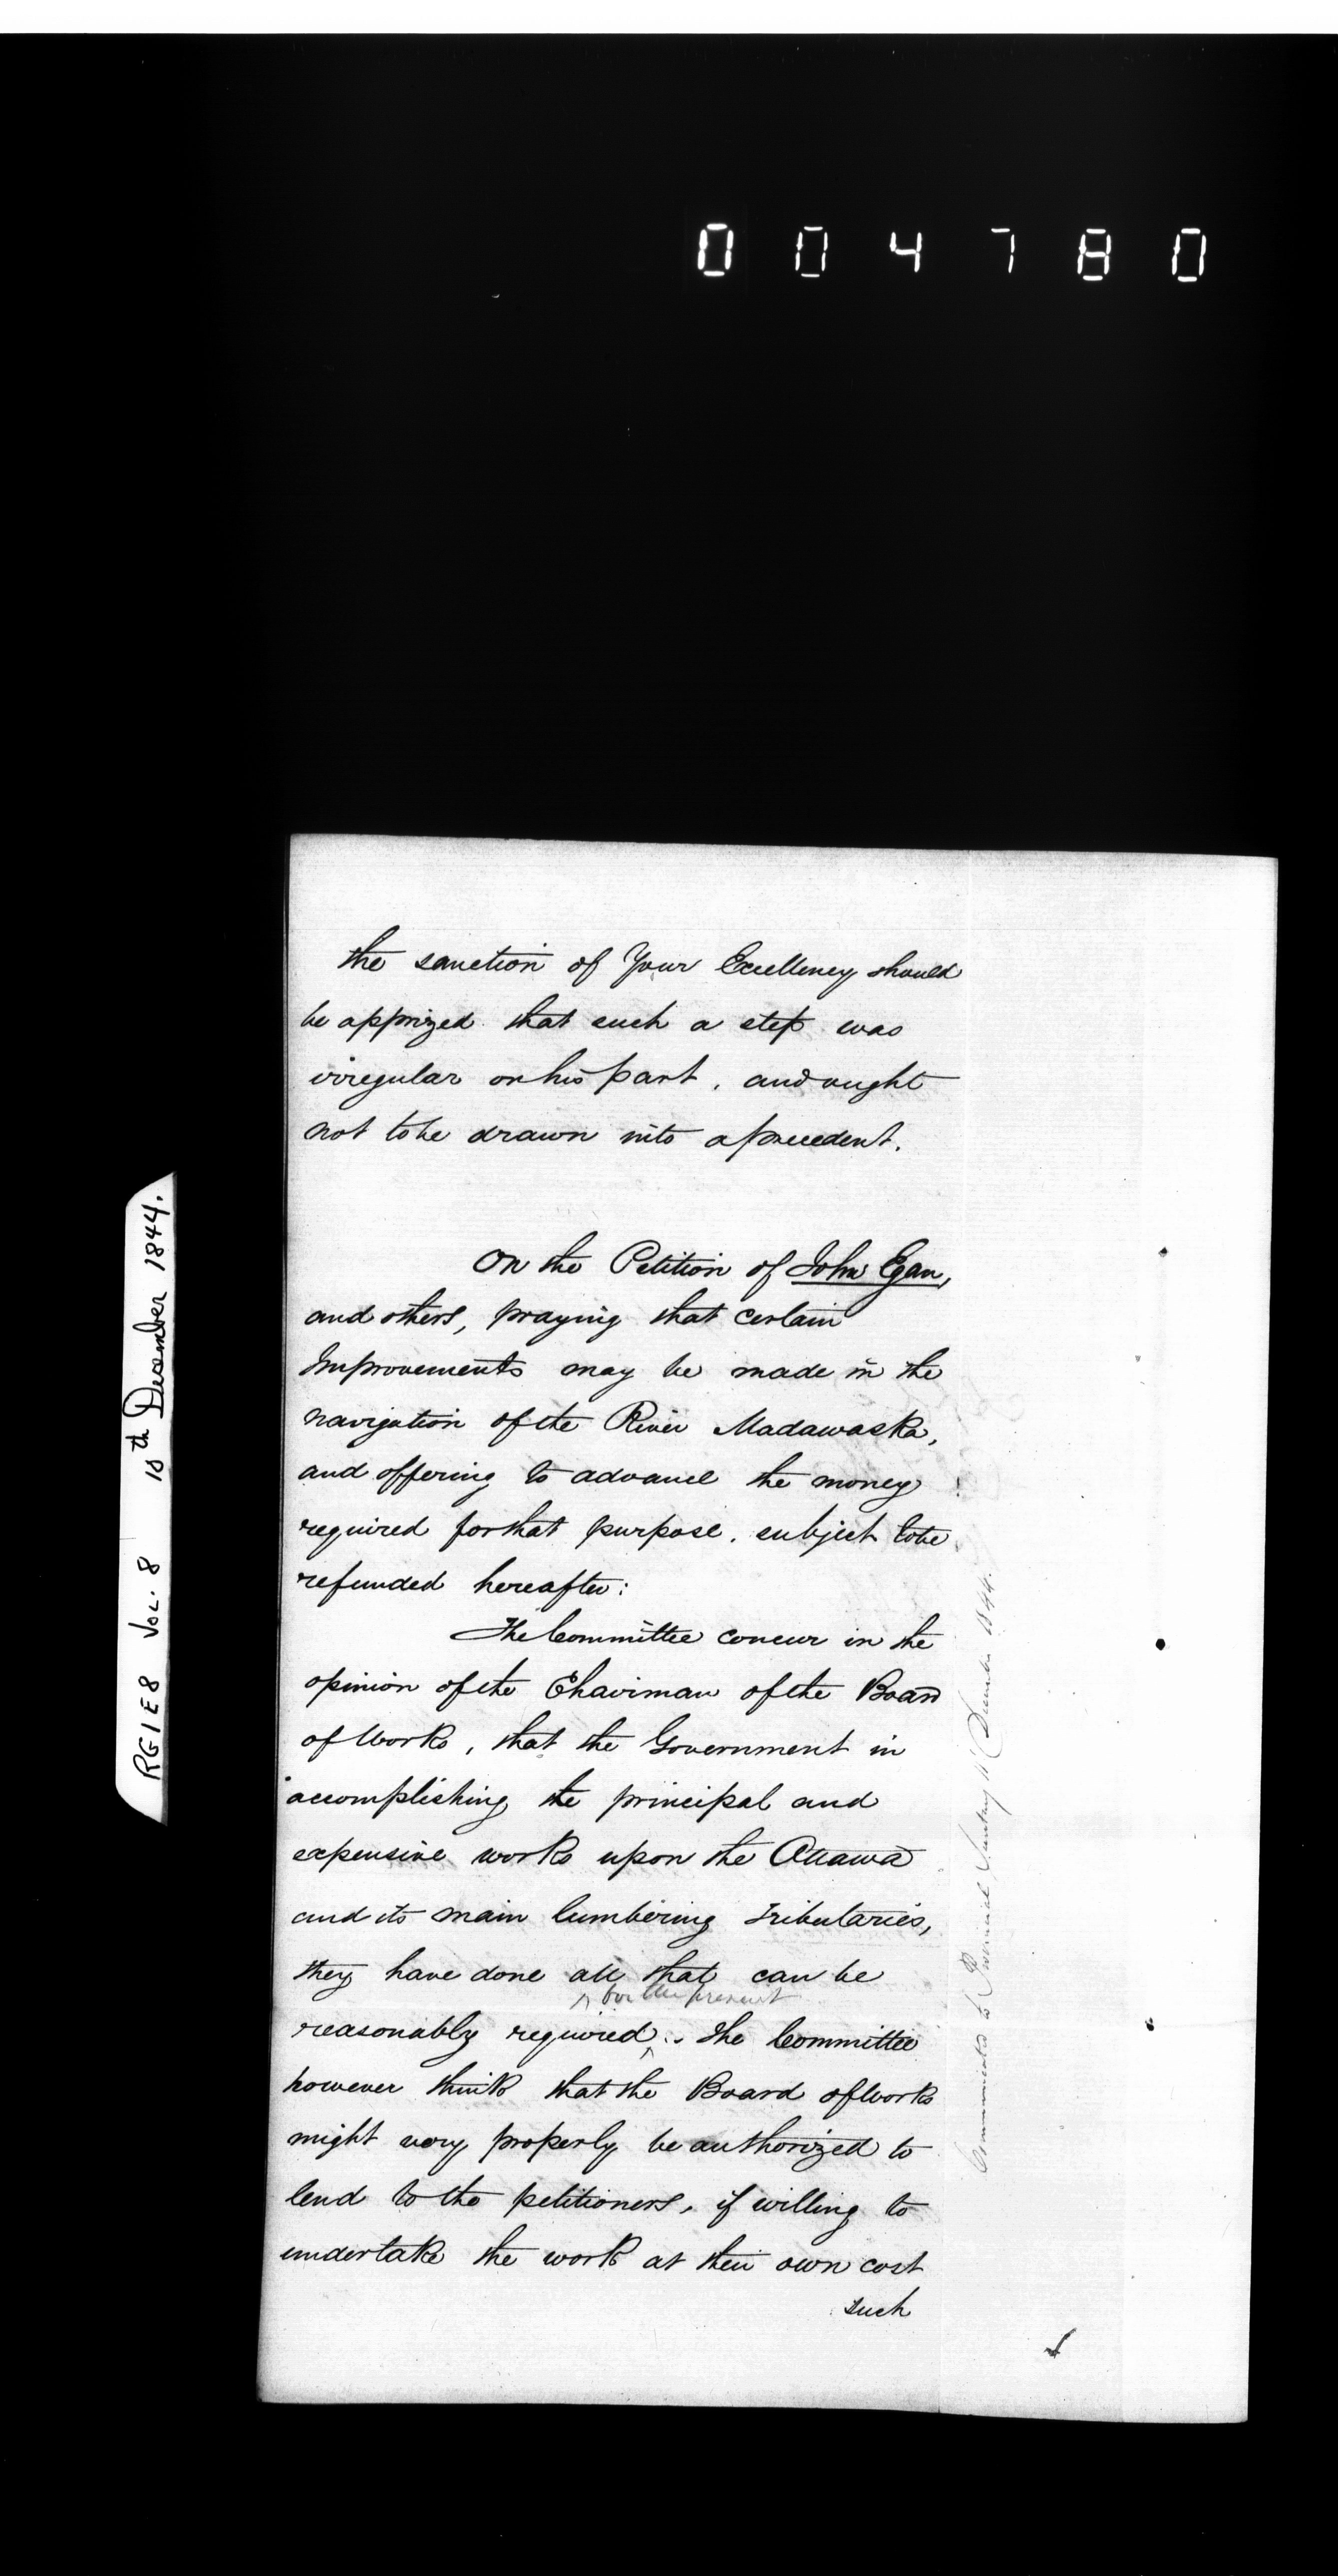 0 0 4 7 8 0
the sanction of Your Excellency should
be apprized that such a step was
irregular on his part, and ought
not to be drawn into a precedent.
On the Petition of John Egan,
and others, praying that certain
Improvements may be made in the
navigation of the River Madawaska,
and offering to advance the money
required for that purpose, subject to be
refunded hereafter:
The Committee concur in the
opinion of the Chairman of the Board
of Works, that the Government in
accomplishing the principal and
expensive works upon the Ottawa
and its main lumbering tributaries,
they have done all that can be
for the present
reasonably required. The Committee
however think that the Board of Works
might very properly be authorized to
lend to the petitioners, if willing to
undertake the work at their own cost
such
Communicated to Provincial Secretary December 1844.
RG1E8 VOL. 8 18th December 1844.